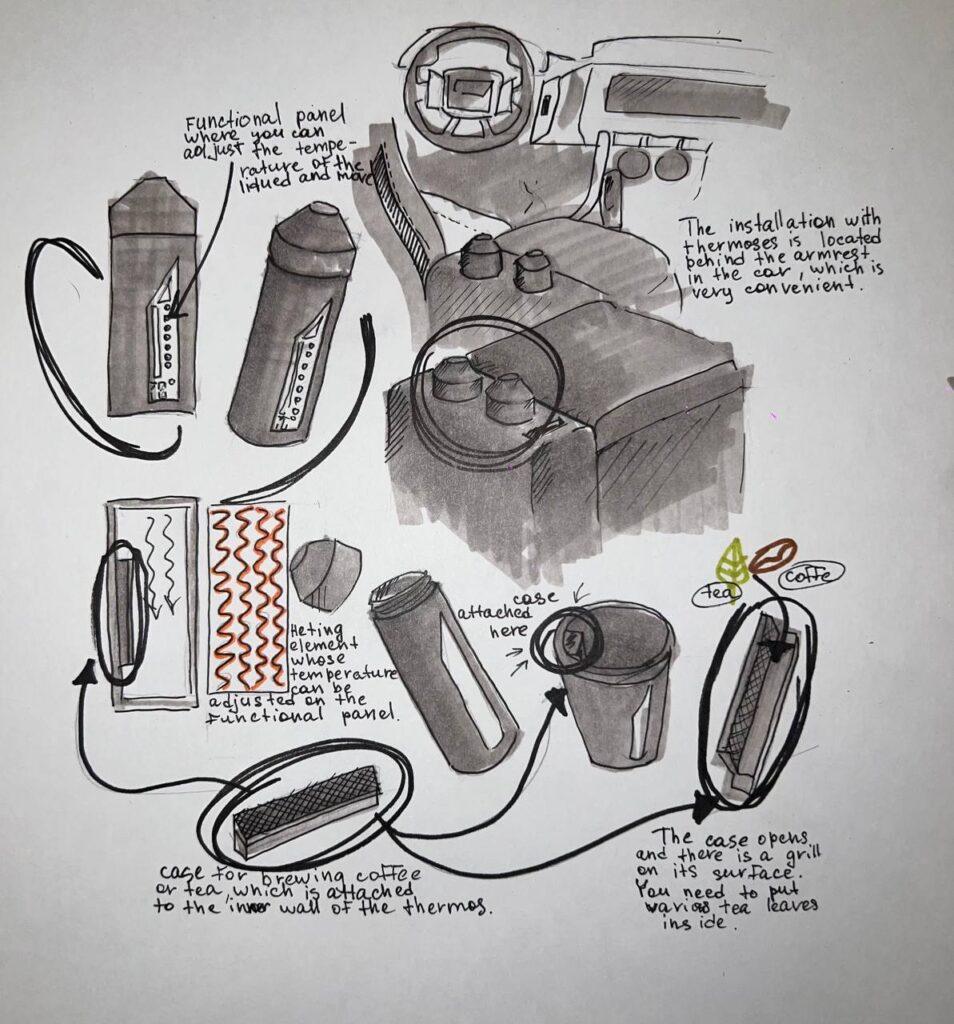 Functional panel
where you can
adjust the tempe-
rature of the
liqued and more
The installation with
thermoses is located
behind the armrest
in the car, which is
very convenient.
tea
coffe
case
attached
here
Heting
element
whose
temperature
can be
adjusted on the
functional panel.
case for brewing coffee
or tea, which is attached
to the inner wall of the thermos.
The case opens
and there is a grill
on its surface.
You need to put
various tea leaves
inside.